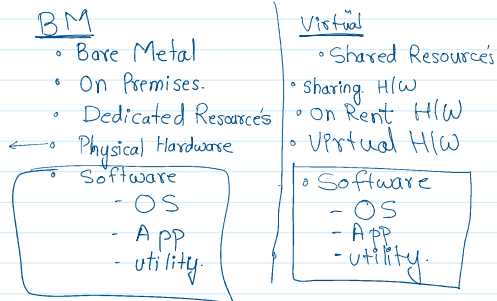 BM
• Bare Metal
• On Premises.
• Dedicated Resource's
• Physical Hardware
• Software
- OS
- App
- utility.
Virtual
• Shared Resource's
• Sharing H/W
• on Rent H/W
• Virtual H/W
• Software
- OS
- App
- utility.